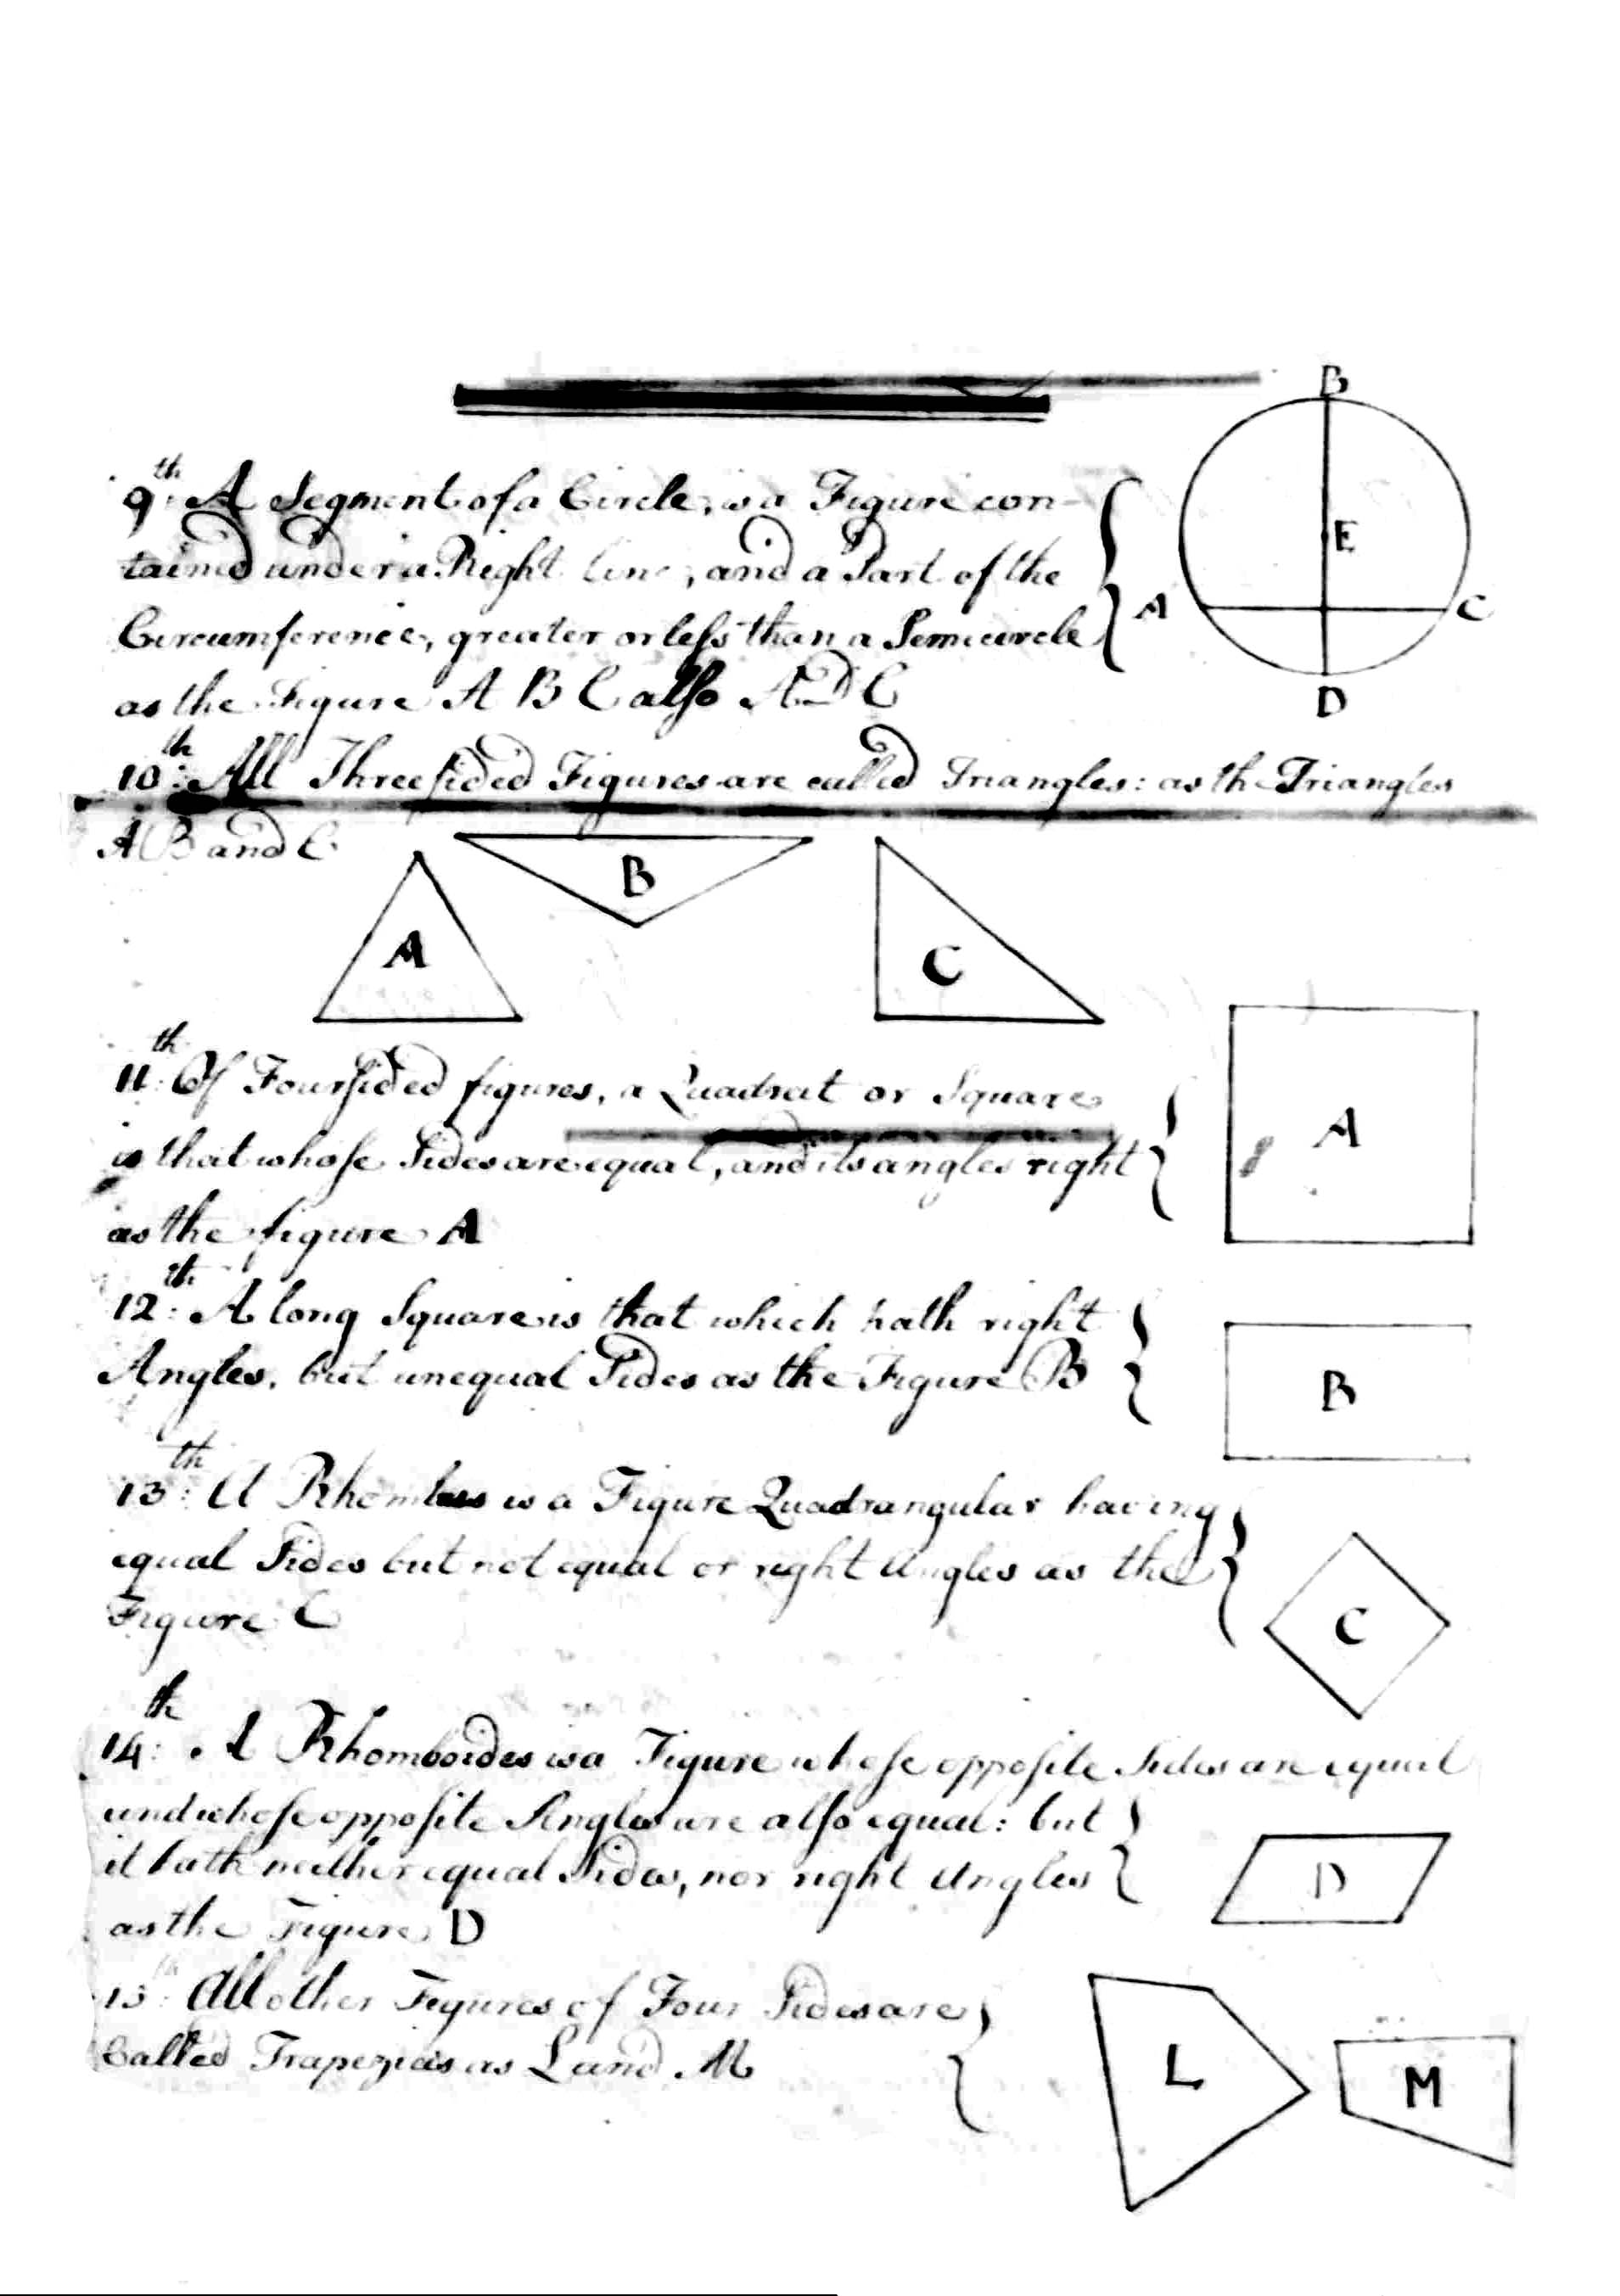 B
9th: A Segment of a Circle, is a Figure con-
E
tained under a Right line, and a Part of the
A C
Circumference, greater or leſs than a Semicircle
as the Figure A B C alſo A D C
D
10th: All Threeſided Figures are called Triangles: as the Triangles
A B and C
B
A
C
11th: Of Fourſided figures, a Quadrat or Square
A
is that whoſe Sides are equal, and its angles right
as the figure A
12th: A long Square is that which hath right
Angles, but unequal Sides as the Figure B
B
13th: A Rhombus is a Figure Quadrangular having
equal Sides but not equal or right Angles as the
Figure C
C
14th: A Rhomboides is a Figure whoſe oppoſite Sides are equal
and whoſe oppoſite Angles are alſo equal: but
it hath neither equal Sides, nor right Angles
D
as the Figure D
15th: All other Figures of Four Sides are
Called Trapezias as L and M
L
M